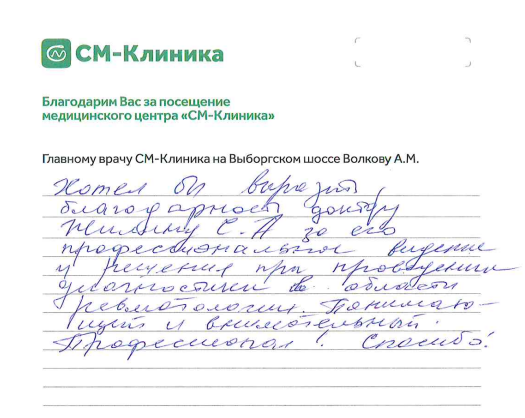 СМ-Клиника
Благодарим Вас за посещение
медицинского центра «СМ-Клиника»
Главному врачу СМ-Клиника на Выборгском шоссе Волкову А.М.
Хотел бы выразить
благодарность доктору
Жилину С.А за его
профессиональное видение
и решения при проведении
диагностики в области
ревматологии. Понимаю-
щий и внимательный.
Профессионал! Спасибо!